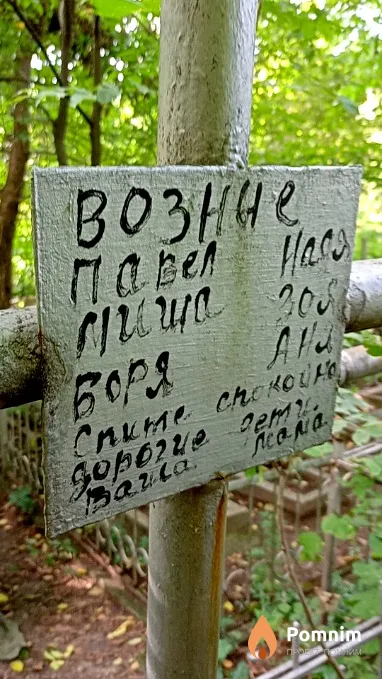 Возные
Павел Настя
Миша Зоя
Боря Аня
Спите спокойно
дорогие дети.
Ваша Мама
Pomnim